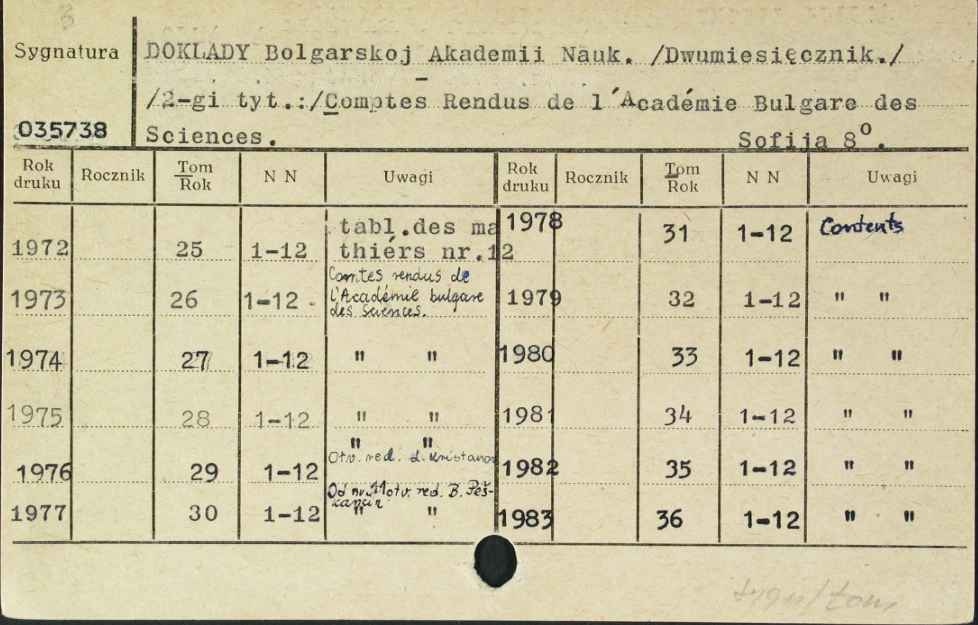 Sygnatura
DOKLADY Bolgarskoj Akademii Nauk. /Dwumiesięcznik./
/2-gi tyt.:/Comptes Rendus de l'Académie Bulgare des
035738
Sciences. Sofija 8°.
Rok druku Rocznik Tom Rok N N Uwagi Rok druku Rocznik Tom Rok N N Uwagi
1972 25 1-12 tabl.des ma
thiérs nr.12
1978 31 1-12 Contents
1973 26 1-12 Comtes rendus de
l'Académie bulgare
des sciences.
1979 32 1-12 " "
1974 27 1-12 " " 1980 33 1-12 " "
1975 28 1-12 " " 1981 34 1-12 " "
1976 29 1-12 " "
Otv. red. 1982 35 1-12 " "
1977 30 1-12 Od nr 11 otv. red. B. Peš-
" " 1983 36 1-12 " "